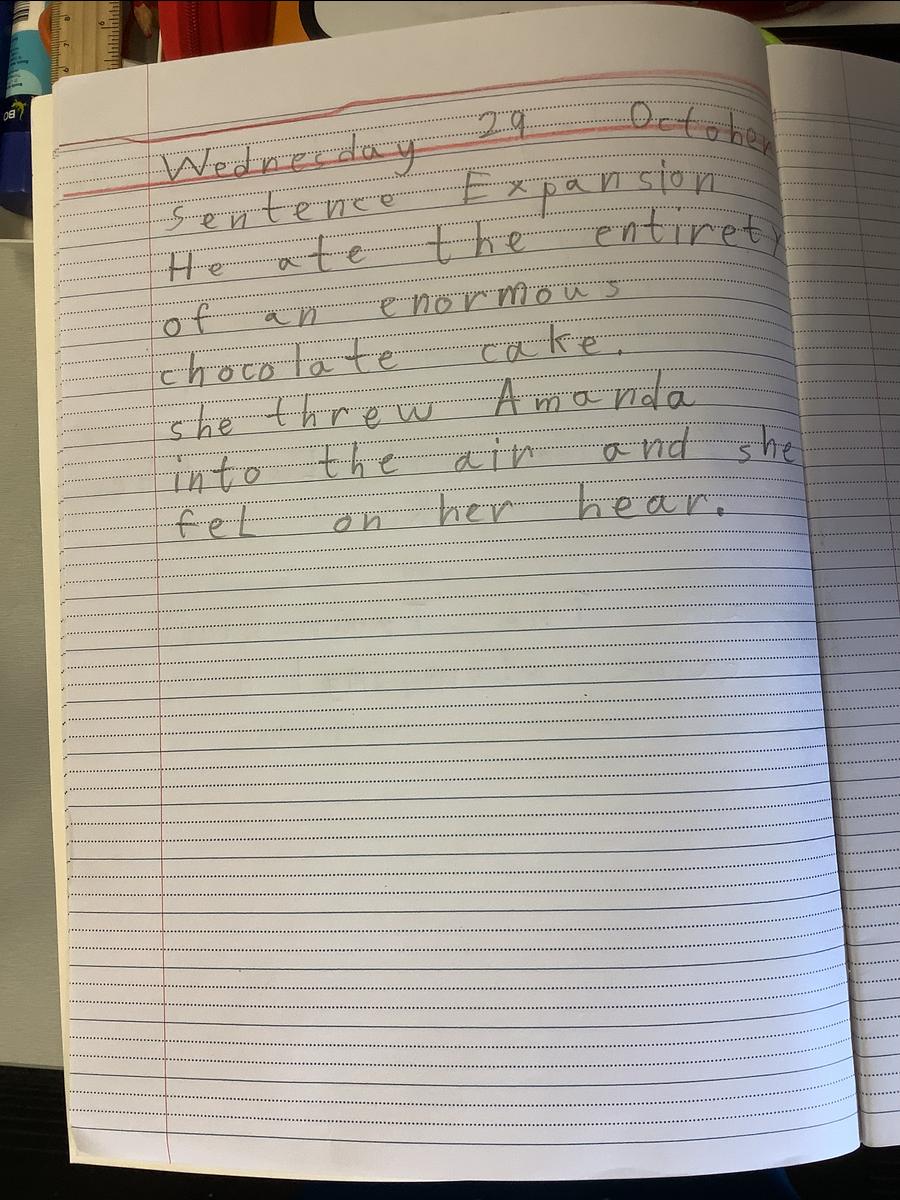 Wednesday 29 October
sentence Expansion
He ate the entirety
of an enormous
chocolate cake.
she threw Amanda
into the air and she
fel on her hear.